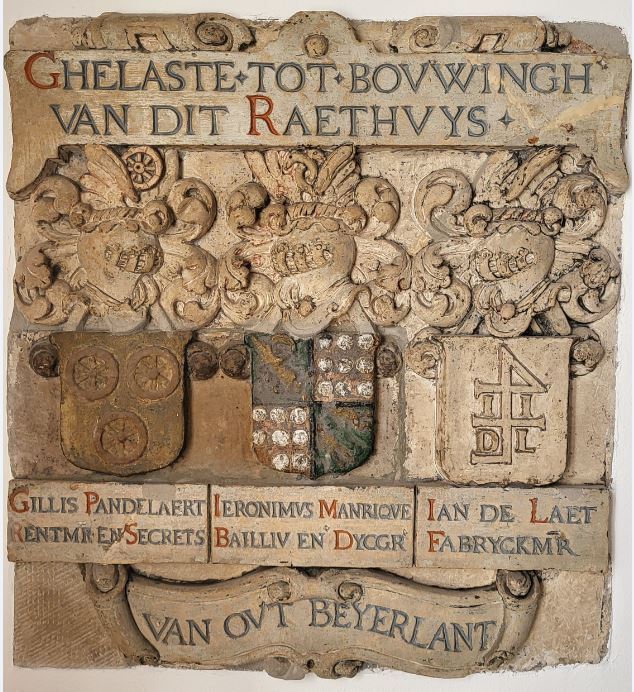 GHELASTE TOT BOVWINGH
VAN DIT RAETHVYS
IIDL
GILLIS PANDELAERT
RENTMR EN SECRETS
IERONIMVS MANRIQVE
BAILLIV EN DYCGR
IAN DE LAET
FABRYCKMR
VAN OVT BEYERLANT